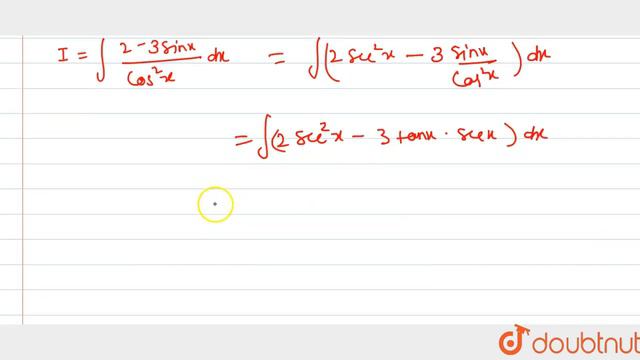 I = ∫ (2 - 3 sinx)/(cos²x) dx = ∫(2 sec²x - 3 sinx/cos²x) dx
= ∫(2 sec²x - 3 tanx · secx) dx
doubtnut